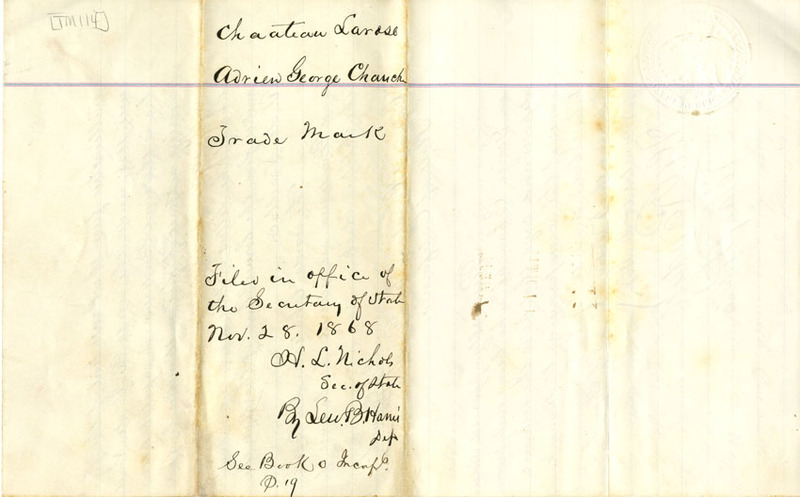 [TM 114]
Chaateau Larose
Adrien George Chauch
Trade Mark
Filed in office of
the Secretary of State
Nov. 28. 1868
H. L. Nichols
Sec. of State
By Lew. B. Harris
Dep
See Book
P. 19